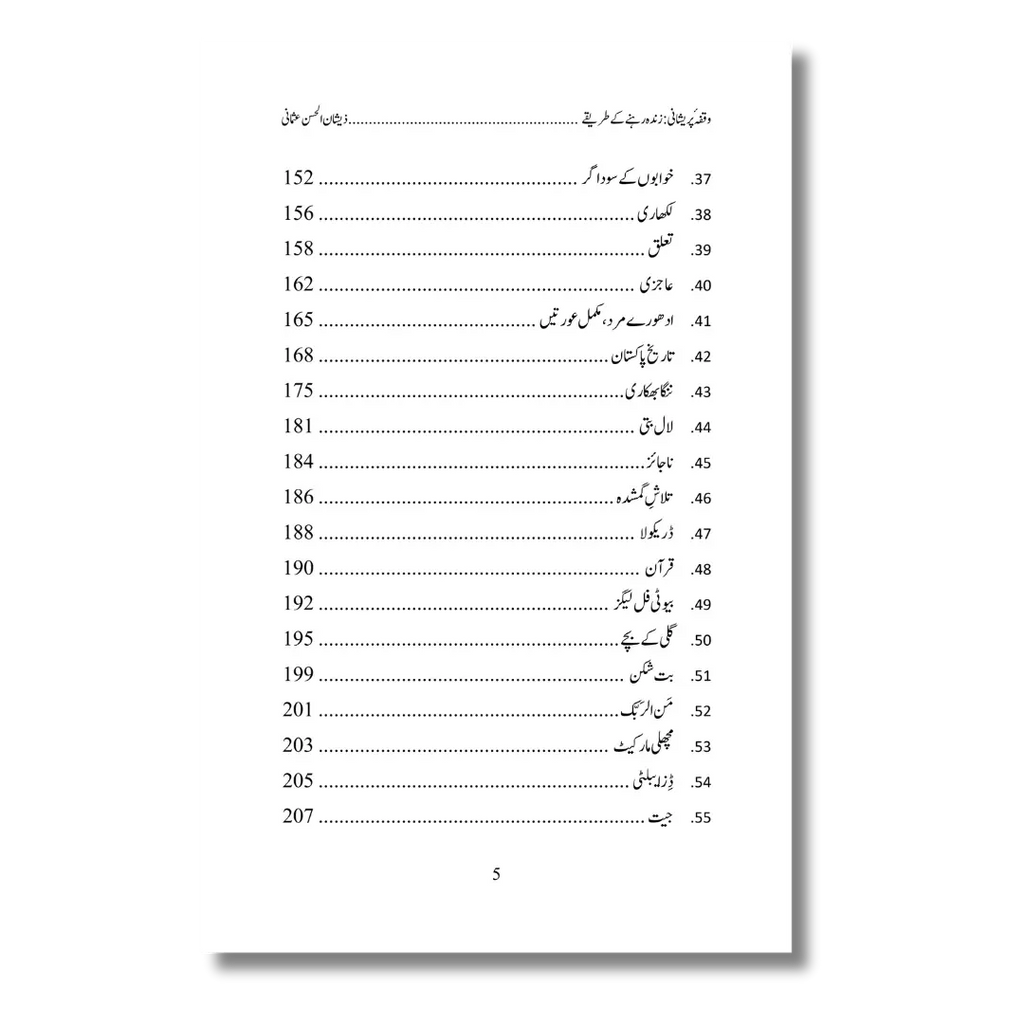 وقفۂ پریشانی: زندہ رہنے کے طریقے ........................................................ ذیشان الحسن عثمانی
37. خوابوں کے سوداگر .................................................. 152
38. لکھاری ............................................................. 156
39. تعلق ............................................................... 158
40. عاجزی ............................................................. 162
41. ادھورے مرد، مکمل عورتیں .......................................... 165
42. تاریخ پاکستان ........................................................ 168
43. ننگا بھکاری ........................................................... 175
44. لال بتی ............................................................. 181
45. ناجائز ............................................................... 184
46. تلاشِ گمشدہ ......................................................... 186
47. ڈریکولا ............................................................. 188
48. قرآن .............................................................. 190
49. بیوٹی فل لیگز ........................................................ 192
50. گلی کے بچے .......................................................... 195
51. بت شکن ........................................................... 199
52. مَن الرَبّک .......................................................... 201
53. مچھلی مارکیٹ ........................................................ 203
54. ڈِزایبلٹی ............................................................ 205
55. جیت ............................................................... 207
5